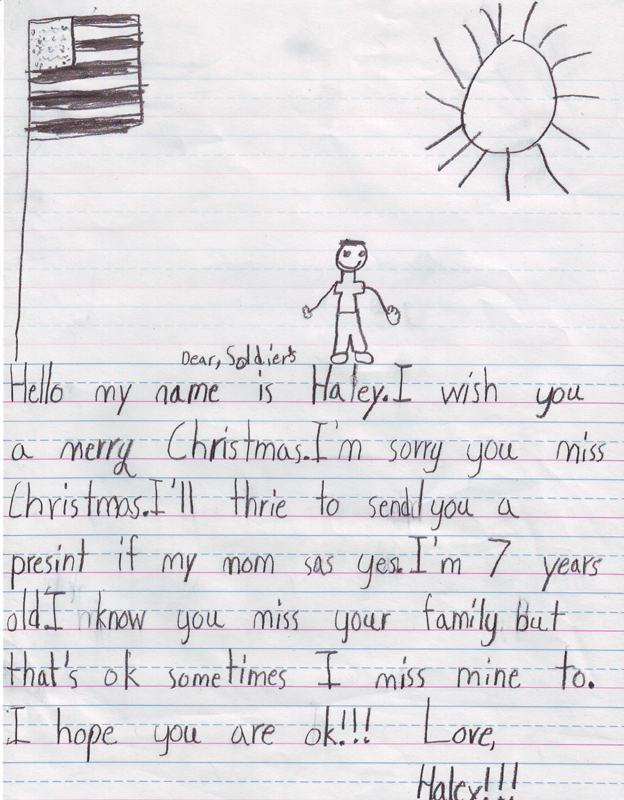 Dear, Soldiers
Hello my name is Haley.I wish you
a merry Christmas.I'm sorry you miss
Christmas.I'll thrie to send you a
presint if my mom sas yes.I'm 7 years
old.I know you miss your family but
that's ok sometimes I miss mine to.
I hope you are ok!!! Love,
Haley!!!